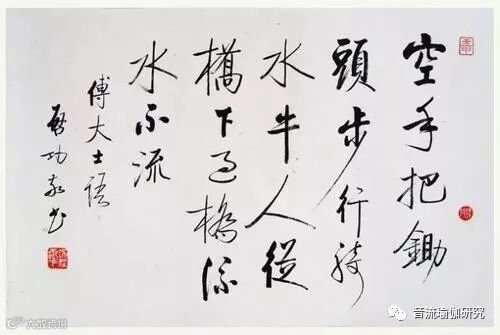 空手把鋤
頭步行騎
水牛人從
橋下過橋流
水不流
傅大士語
啓功敬書
大数跨境
音流瑜伽研究